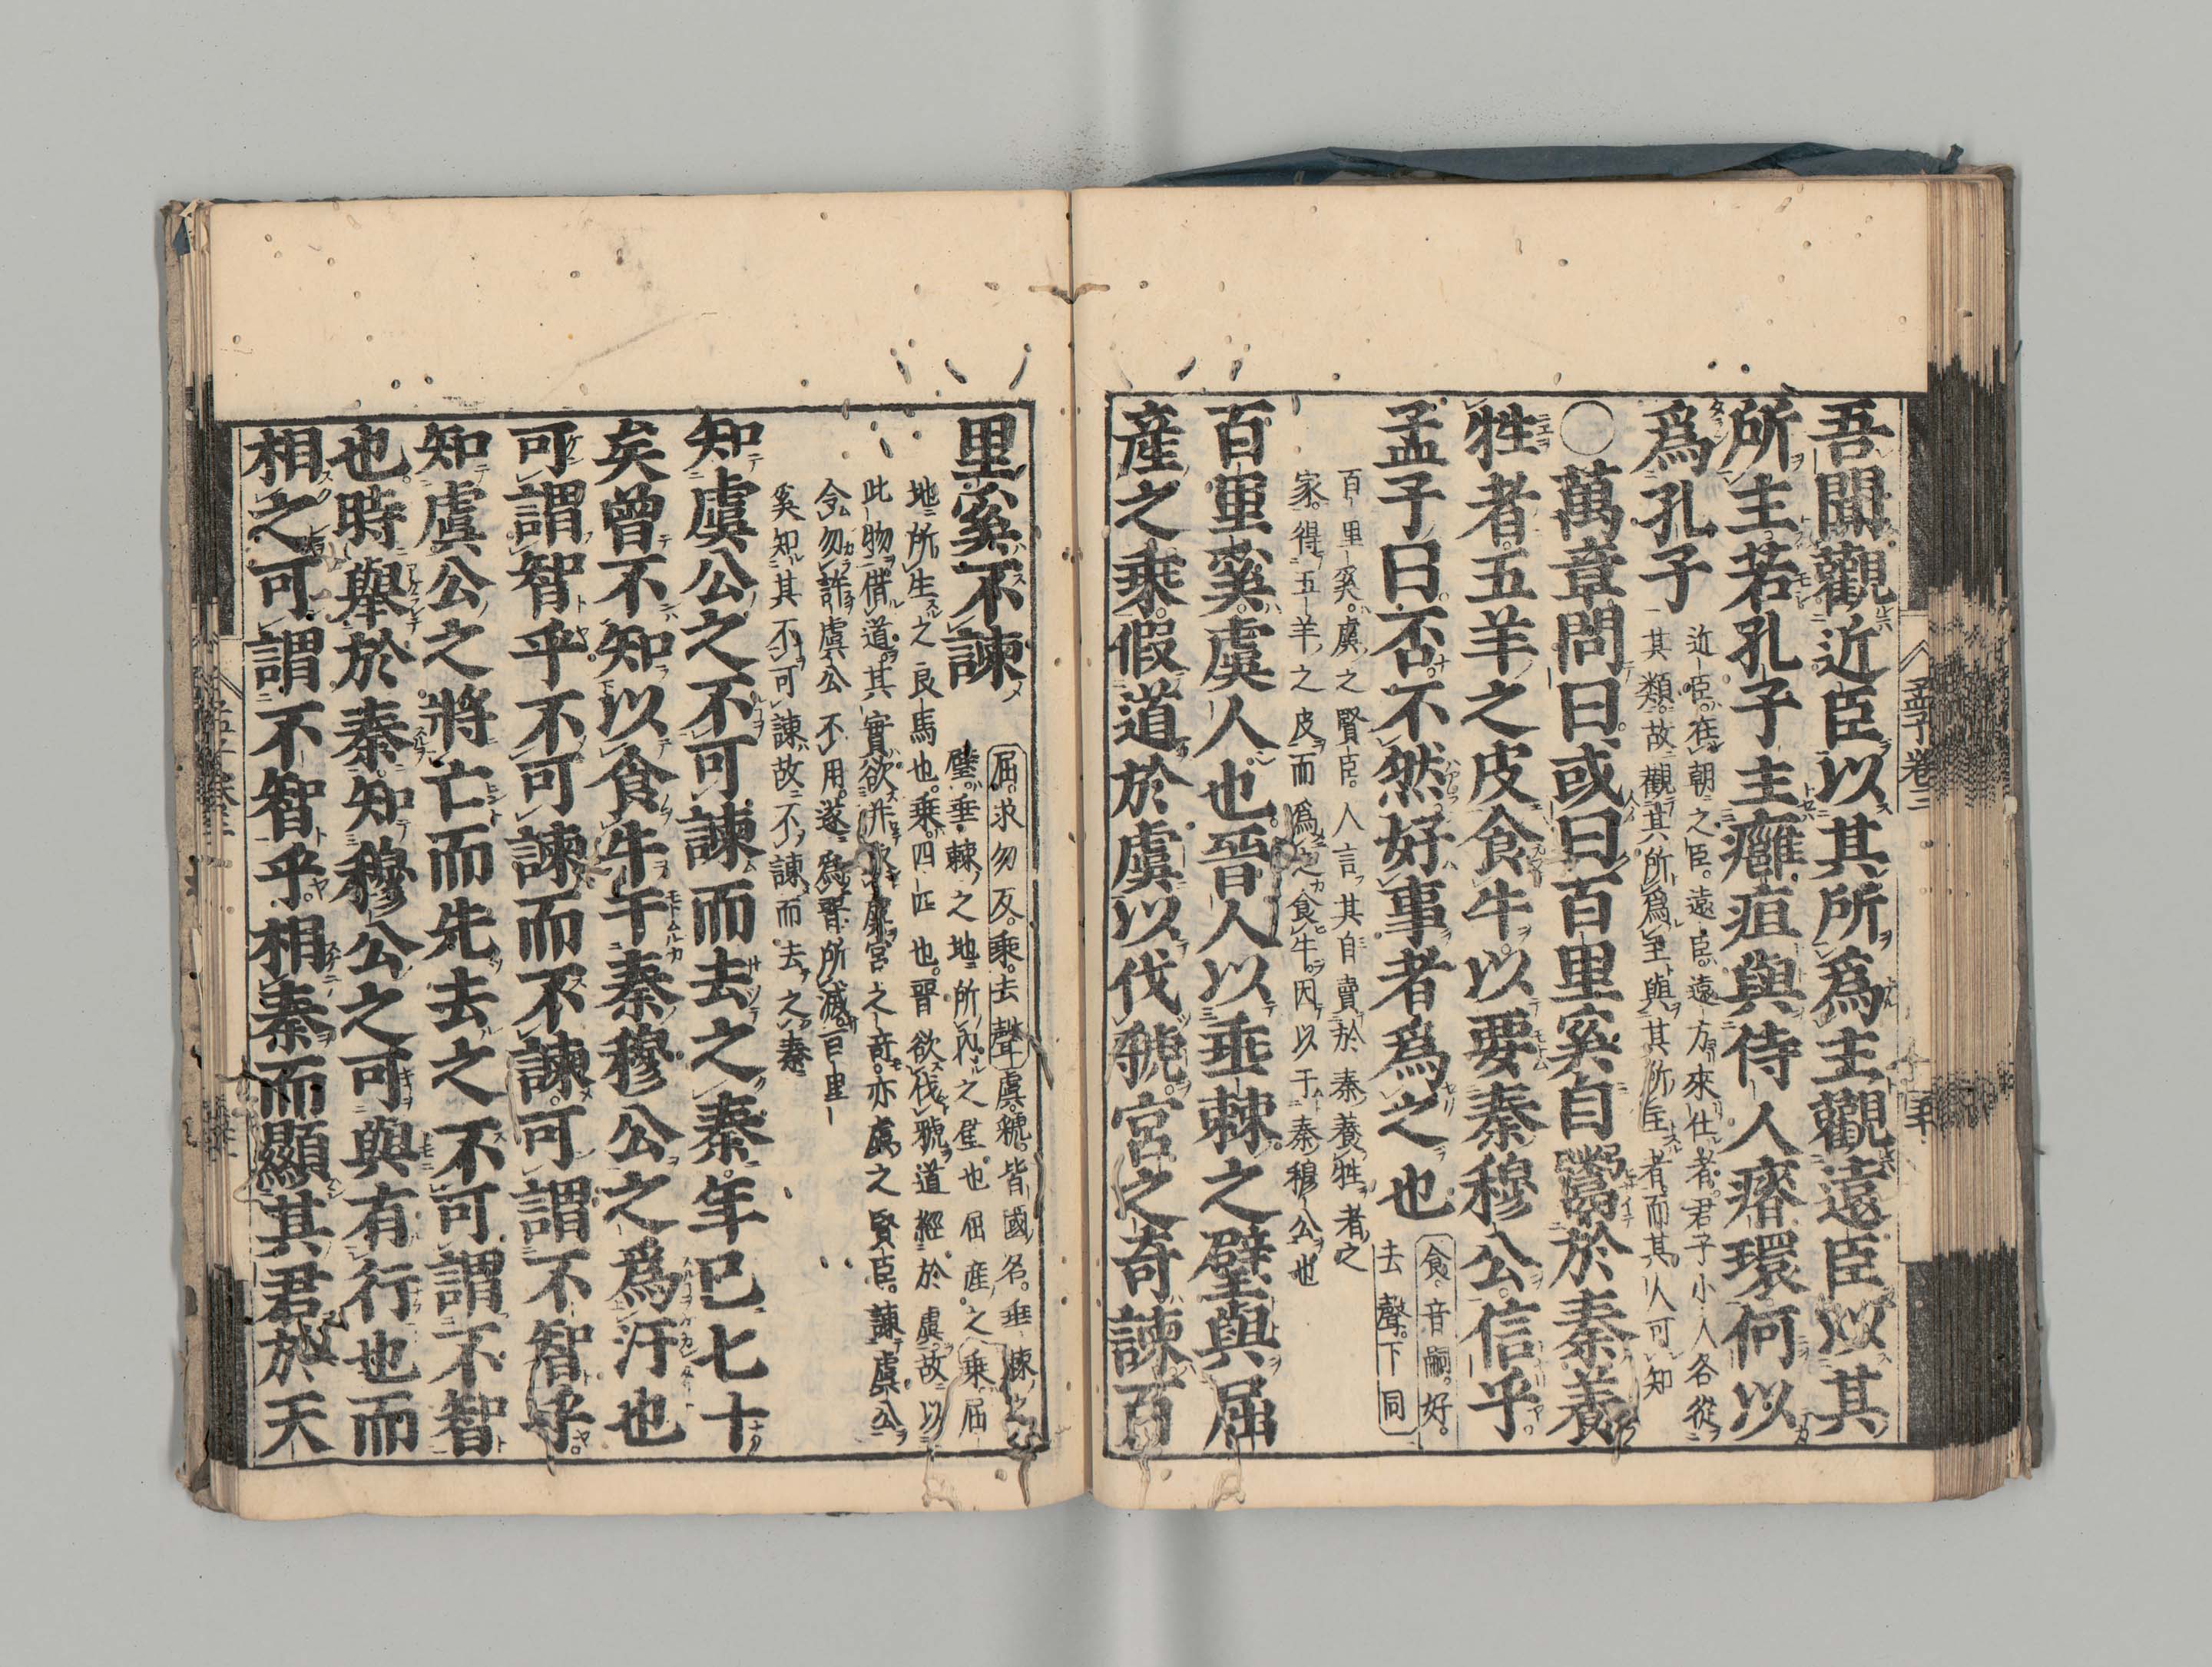 吾聞觀近臣以其所爲主觀遠臣以其
所主若孔子主癰疽與侍人瘠環何以
爲孔子
近臣。在朝之臣。遠臣。遠方來仕者。君子小人各從
其類。故觀其所爲主與其所主者。而其人可知
○萬章問曰或曰百里奚自鬻於秦養
牲者五羊之皮食牛以要秦穆公信乎
孟子曰否不然好事者爲之也
食音嗣。好。
去聲。下同
百里奚。虞之賢臣。人言其自賣於秦養牲者之
家。得五羊之皮而爲之食牛。因以干秦穆公也
百里奚。虞人也晉人以垂棘之璧與屈
產之乘。假道於虞以伐虢宮之奇諫百
里奚不諫
屈。求勿反。乘。去聲 虞。虢。皆國名。垂棘之
璧。垂棘之地所出之璧也屈產之乘。屈
地所生之良馬也。乘。四匹也。晉欲伐虢道經於虞。故以
此物借道。其實欲并取虞。宮之奇。亦虞之賢臣。諫虞公
令勿許虞公不用。遂爲晉所滅。百里
奚知其不可諫故不諫而去之秦
知虞公之不可諫而去之秦。年已七十
矣曾不知以食牛干秦穆公之爲汙也
可謂智乎不可諫而不諫。可謂不智乎
知虞公之將亡而先去之不可謂不智
也。時舉於秦。知穆公之可與有行也而
相之可謂不智乎。相秦而顯其君於天
孟子卷三